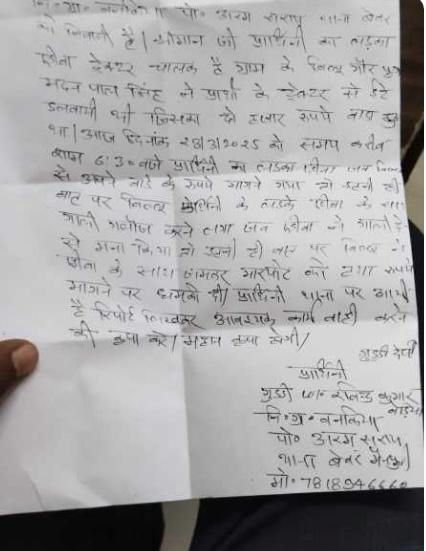 नि० ग्रा० बनकिया पो० अरम सराय थाना बेवर
की निवासी है। श्रीमान जी प्रार्थिनी का लडका
टेक्टर चालक है ग्राम के बिल्लू और पुत्र
मदन पाल सिंह ने प्रार्थी के टेक्टर से ईटे
डलवायी थी जिसका दो हजार रूपये भाडा हुआ
था। आज दिनांक 28/3/2025 को समय करीब
शाम 6:30 बजे प्रार्थिनी का लडका जब बिल्लू
से अपने भाडे के रूपये मांगने गया तो इतनी सी
बात पर बिल्लू प्रार्थिनी के लडके के साथ
गाली गलौज करने लगा जब ने गाली देने
से मना किया तो इतनी ही बात पर बिल्लू ने
के साथ जमकर मारपीट की तथा रूपये
मांगने पर धमकी दी। प्रार्थिनी थाना पर आयी
है रिपोर्ट लिखकर आवश्यक कार्यवाही करने
की कृपा करे। महान कृपा होगी।
गुड्डी देवी
प्रार्थिनी
गुड्डी कुमार
नि० ग्रा० बनकिया
पो० अरम सराय
थाना बेवर मैनपुरी
मो० 7818946660